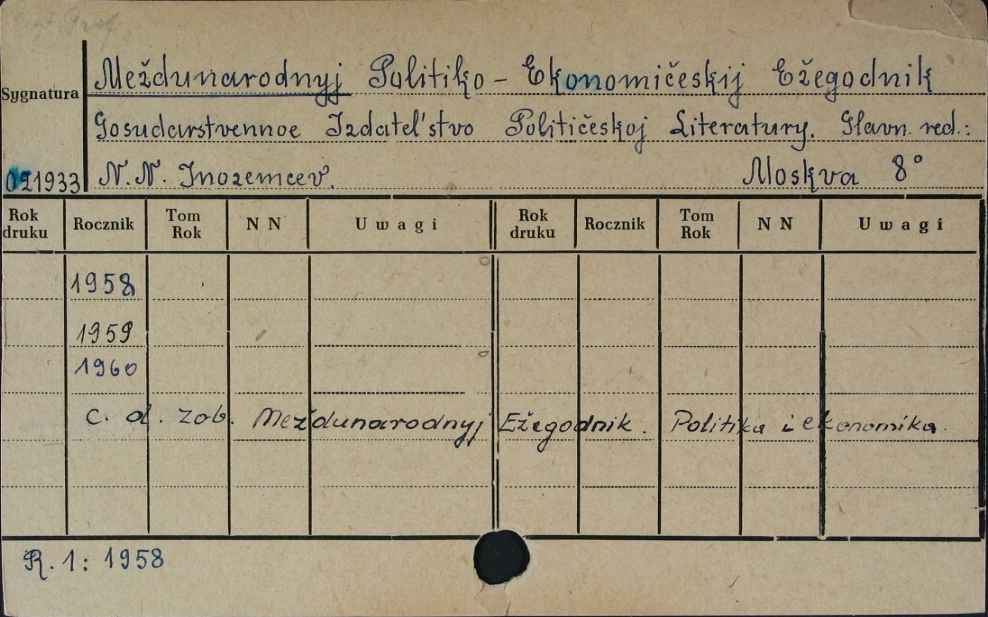 Meždunarodnyj Politiko - Ekonomičeskij Ežegodnik
Sygnatura
Gosudarstvennoe Izdatel'stvo Političeskoj Literatury. Glavn. red.:
1933 N. N. Inozemcev. Moskva 8°
Rok druku Rocznik Tom Rok N N Uwagi Rok druku Rocznik Tom Rok N N Uwagi
1958
1959
1960
c. d. zob. Meždunarodnyj Ežegodnik. Politika i ekonomika.
R. 1: 1958